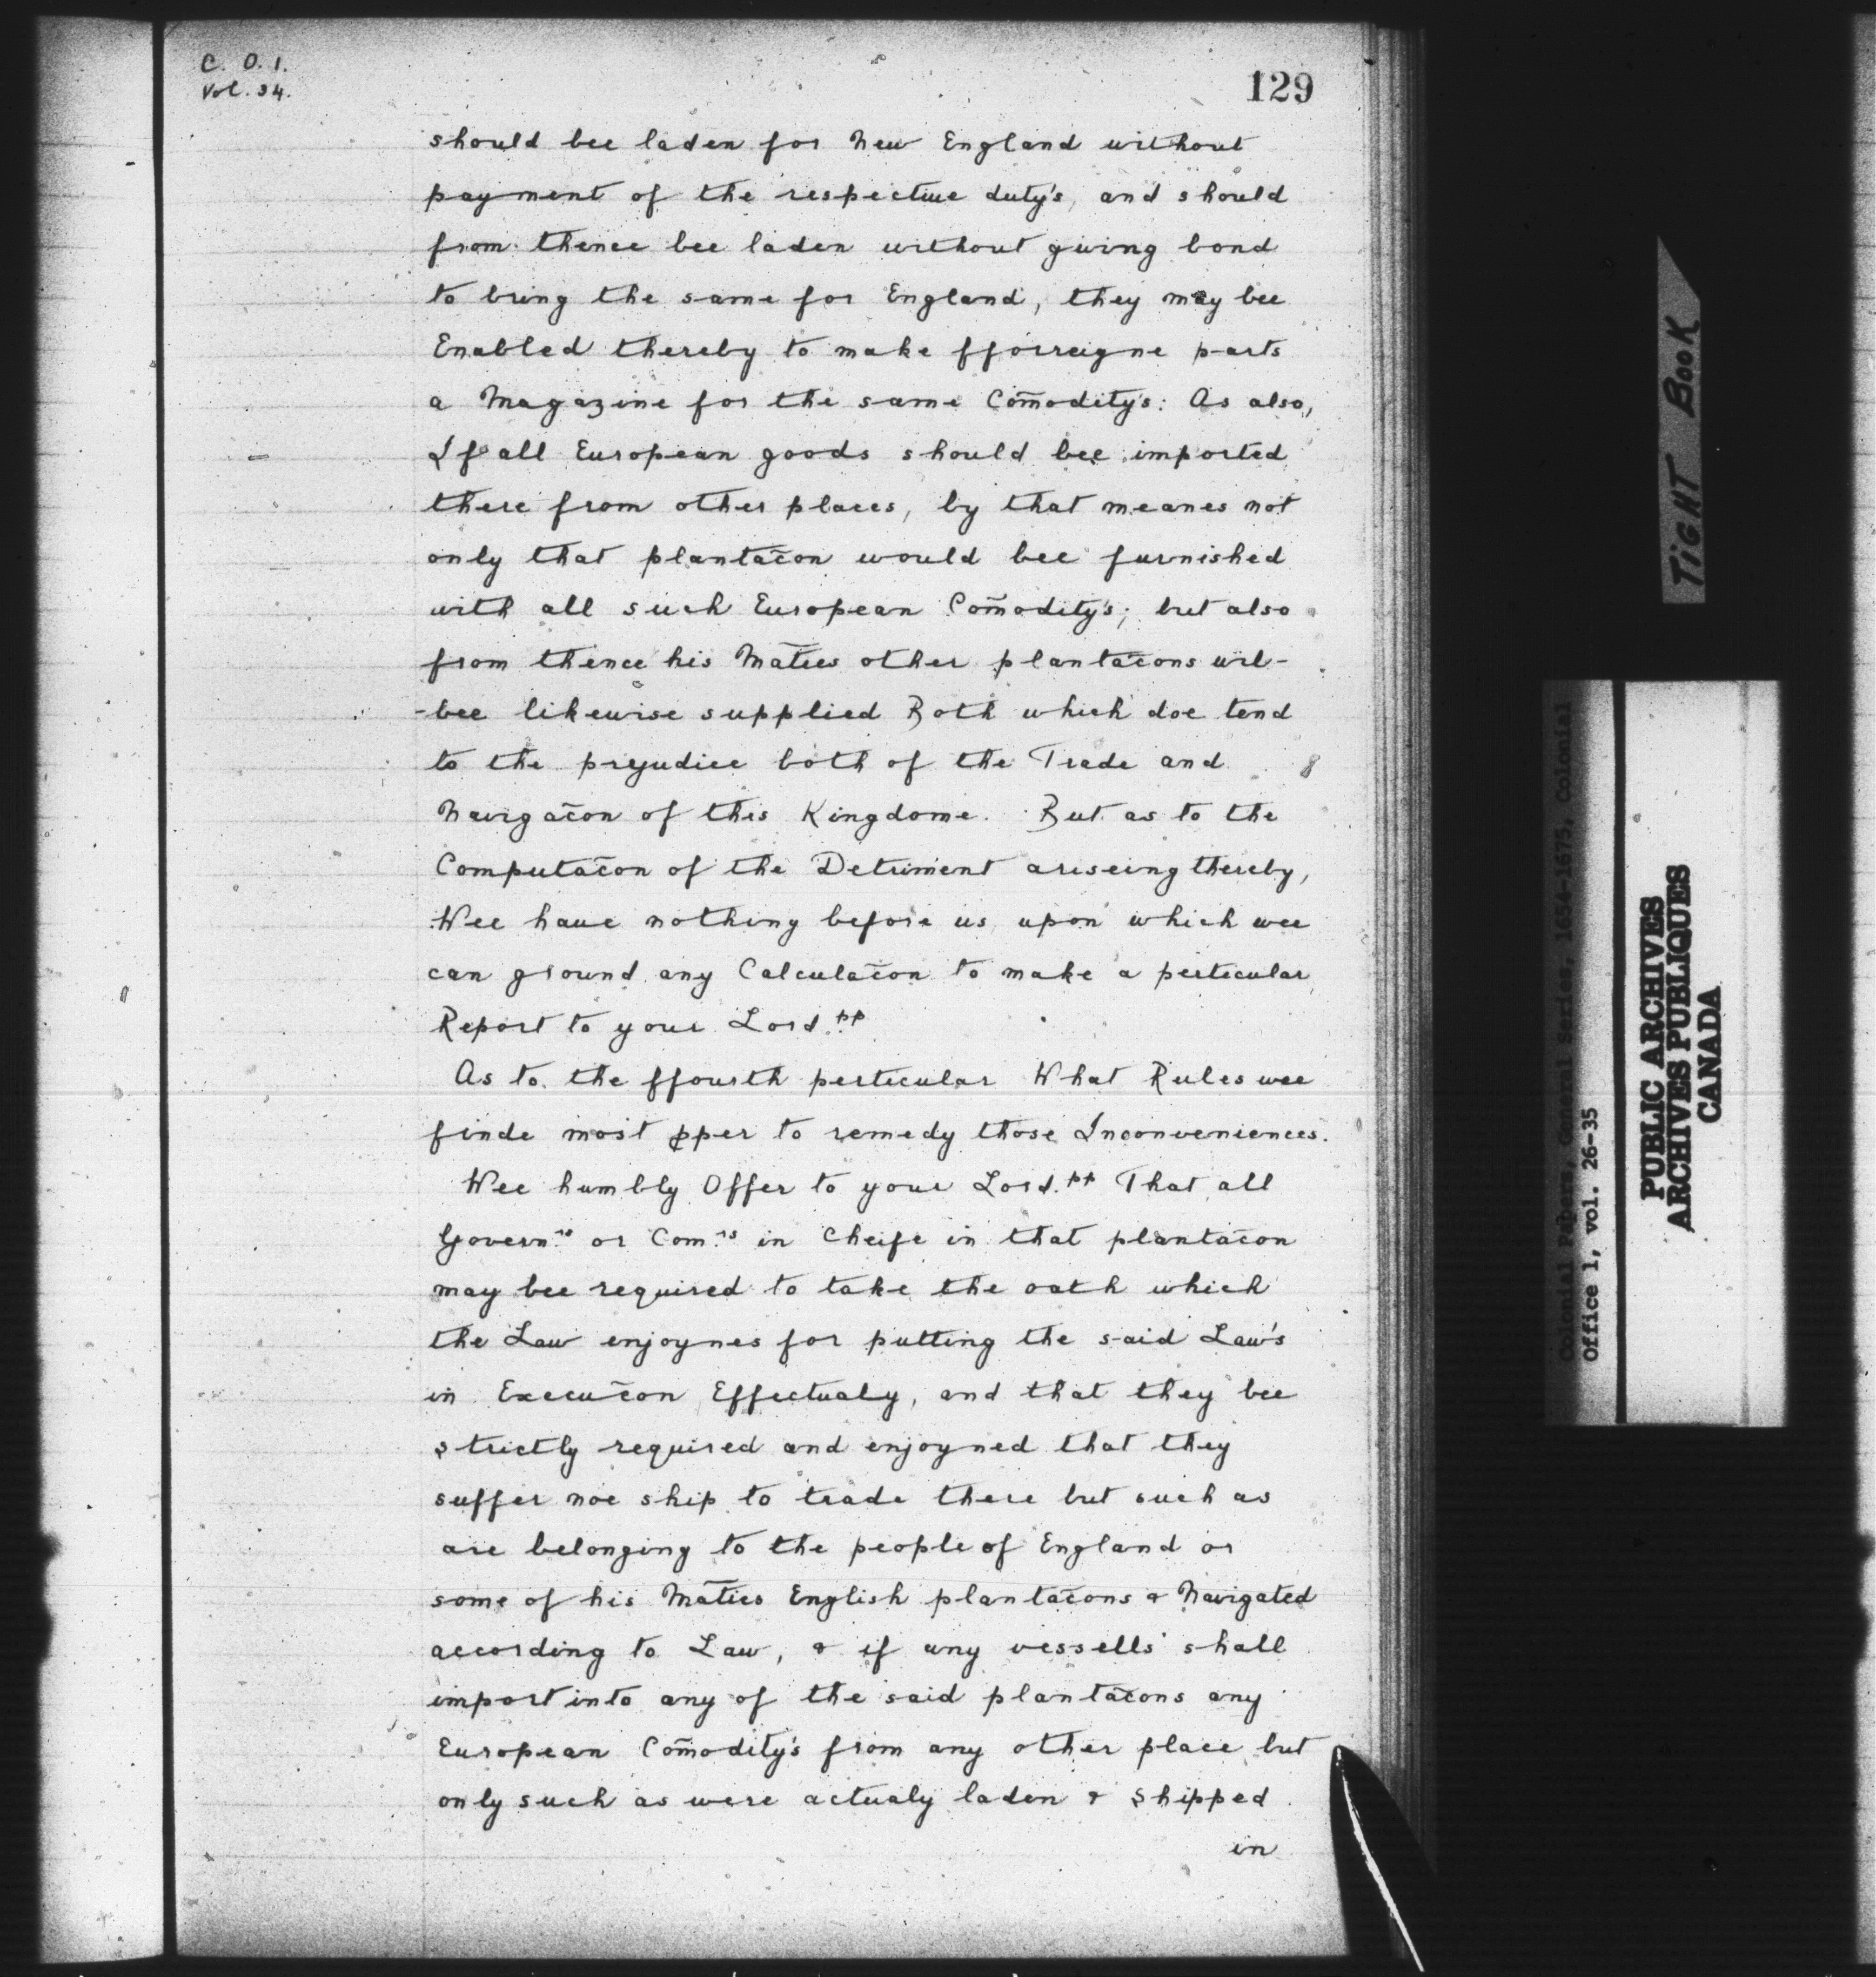 C. O. 1.
Vol. 34.
129
should bee laden for New England without
payment of the respective duty's, and should
from thence bee laden without giving bond
to bring the same for England, they may bee
Enabled thereby to make fforreigne parts
a Magazine for the same Com̄odity's: As also,
If all European goods should bee imported
there from other places, by that meanes not
only that plantac̄on would bee furnished
with all such European Com̄odity's; but also
from thence his Mat̄ies other plantac̄ons wil-
-bee likewise supplied Both which doe tend
to the prejudice both of the Trade and
Navigac̄on of this Kingdome. But as to the
Computac̄on of the Detriment ariseing thereby,
Wee have nothing before us upon which wee
can ground any Calculac̄on to make a perticular
Report to your Lord.pp
As to the ffourth perticular What Rules wee
finde most pper to remedy those Inconveniences.
Wee humbly Offer to your Lord.pp That all
Govern.rs or Com.rs in Cheife in that plantac̄on
may bee required to take the oath which
the Law enjoynes for putting the said Law's
in Execuc̄on Effectualy, and that they bee
strictly required and enjoyned that they
suffer noe ship to trade there but such as
are belonging to the people of England or
some of his Mat̄ies English plantac̄ons & Navigated
according to Law, & if any vessells shall
import into any of the said plantac̄ons any
European Com̄odity's from any other place but
only such as were actualy laden & Shipped
in
TIGHT BOOK
Colonial Papers, General Series, 1654-1675, Colonial
Office 1, vol. 26-35
PUBLIC ARCHIVES
ARCHIVES PUBLIQUES
CANADA